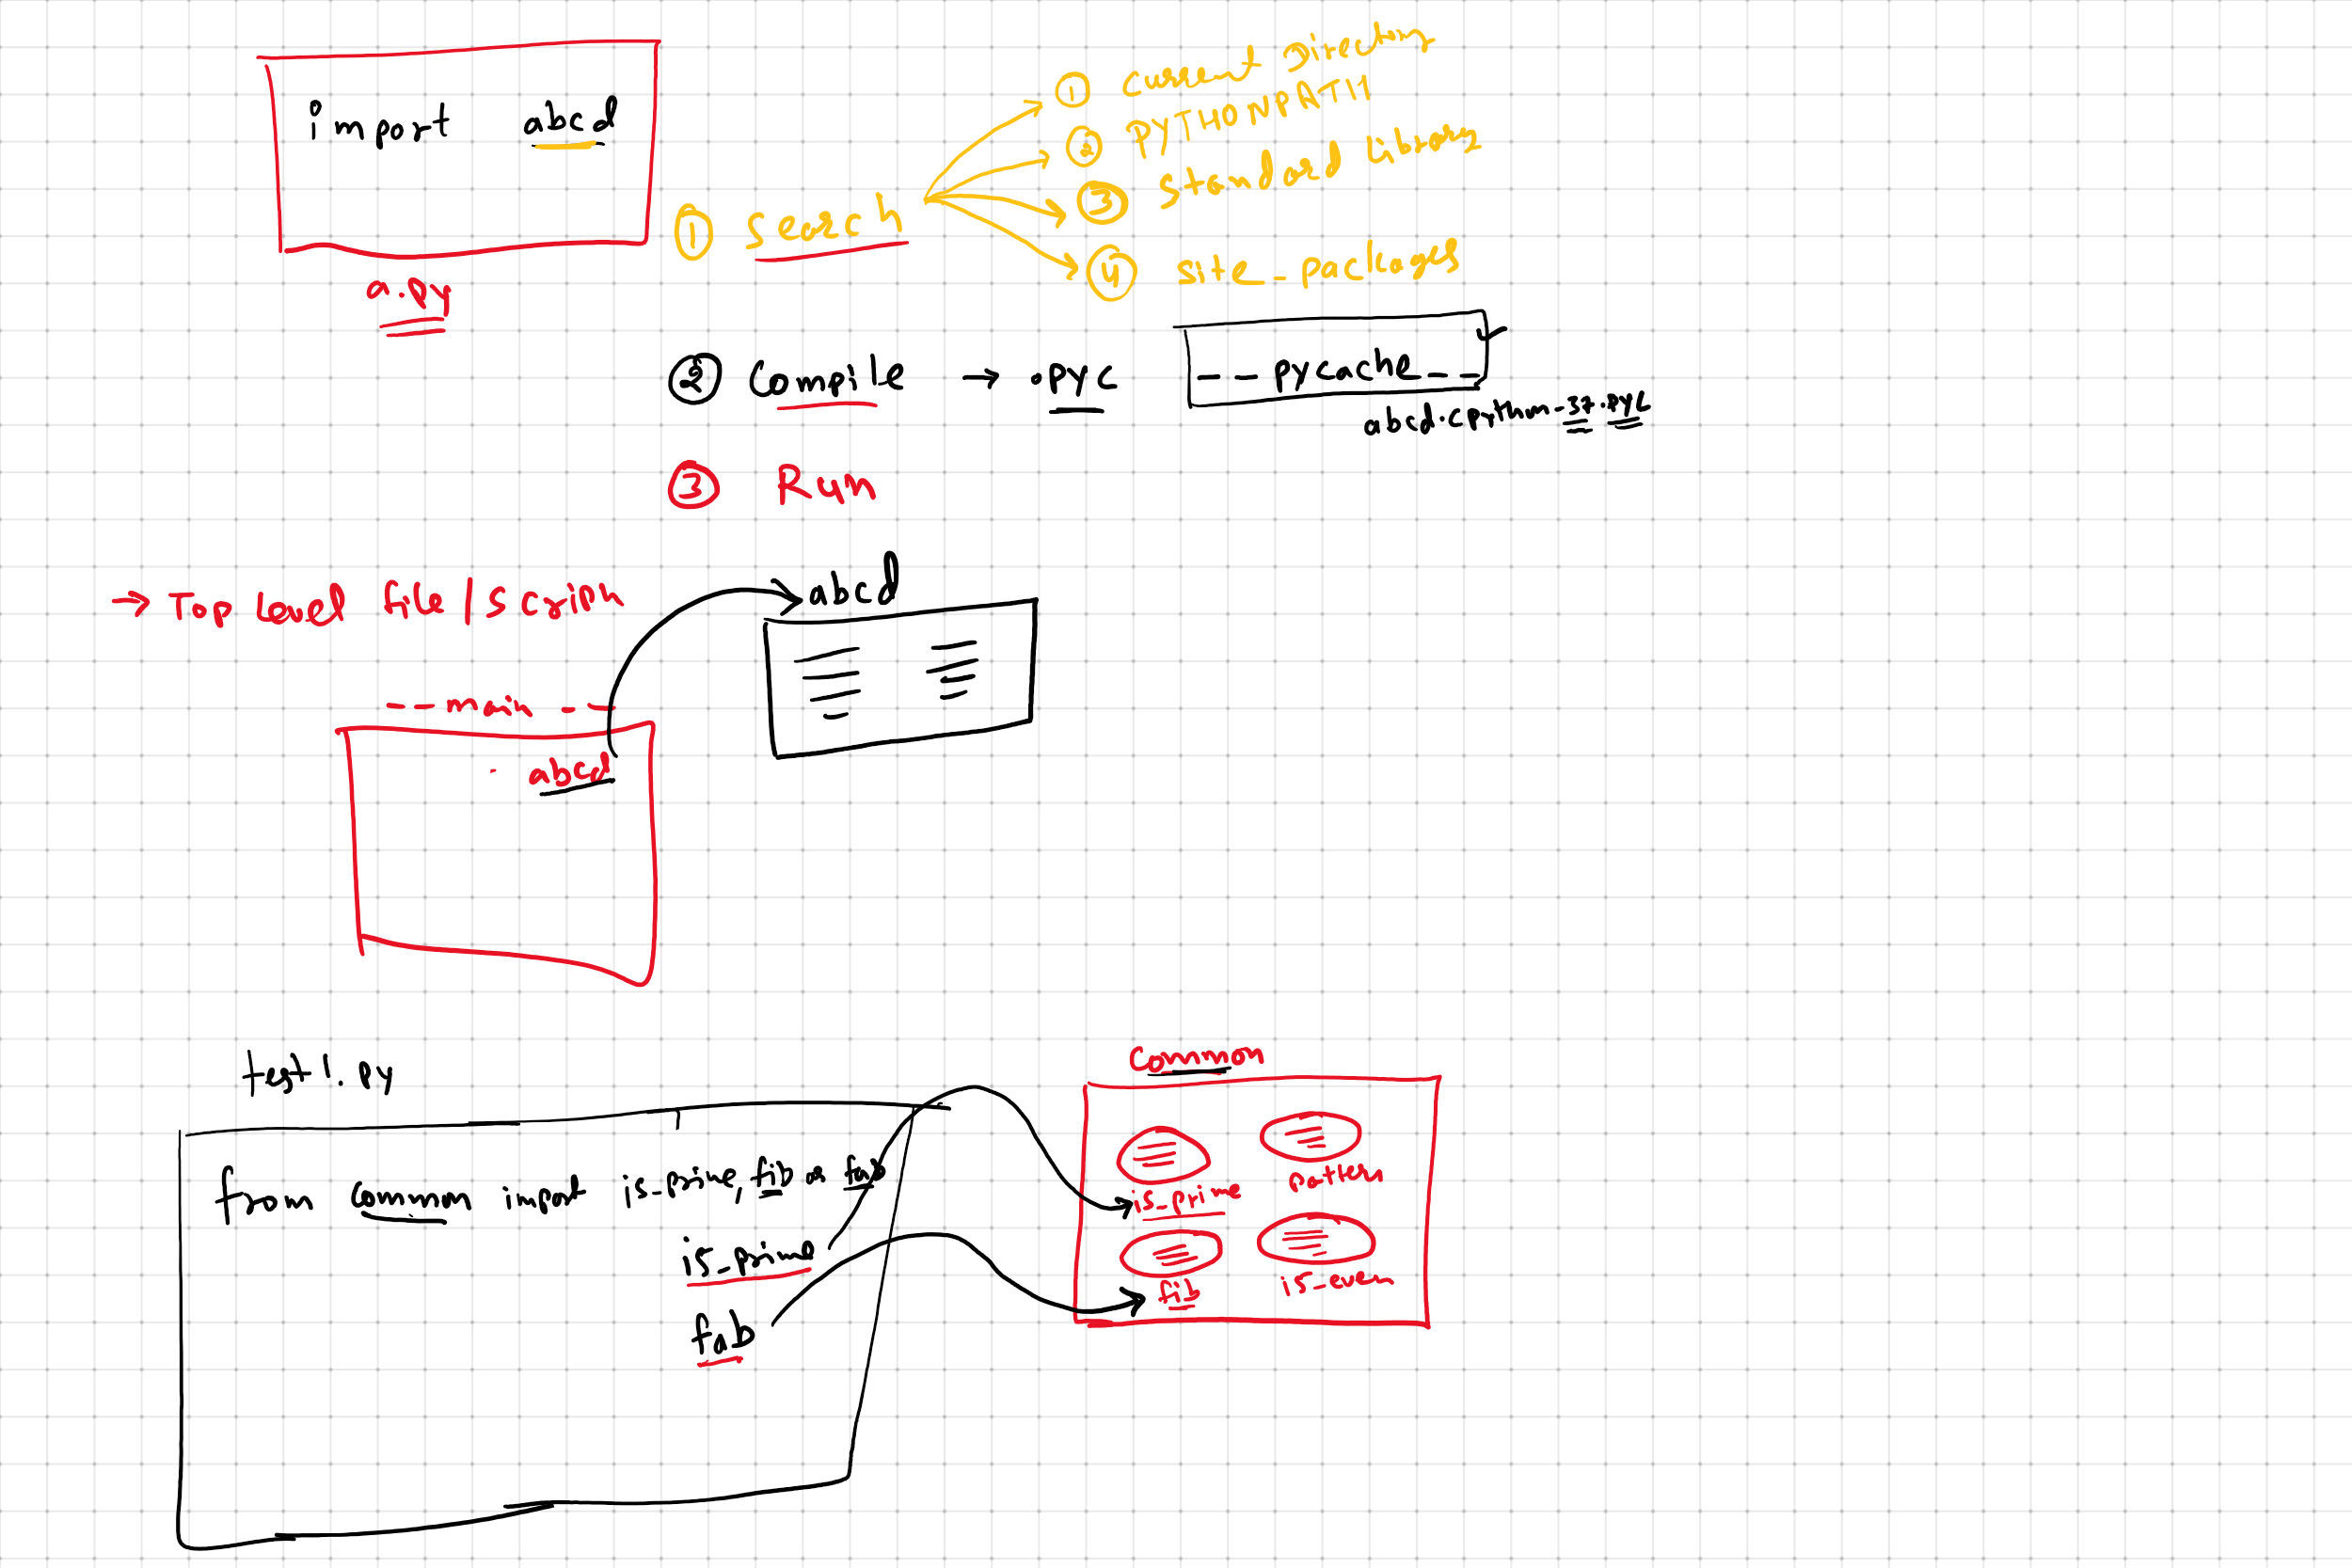 import abcd
a.py
① search
① current Directory
② PYTHONPATH
③ standard library
④ site_packages
② Compile → .pyc
__pycache__
abcd.cpython-37.pyc
③ Run
→ Top Level file/script
__main__
abcd
abcd
test1.py
from common import is_prime, fib as fab
is_prime
fab
Common
is_prime
pattern
fib
is_even